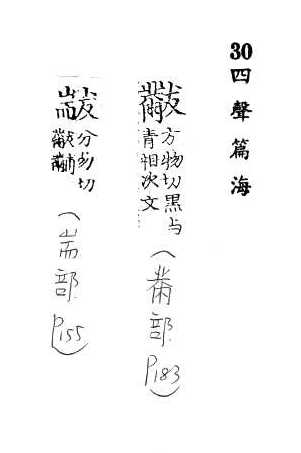 30四聲篇海
黻方物切黑与
青相次文
(黹部P183)
分勿切
(耑部P155)